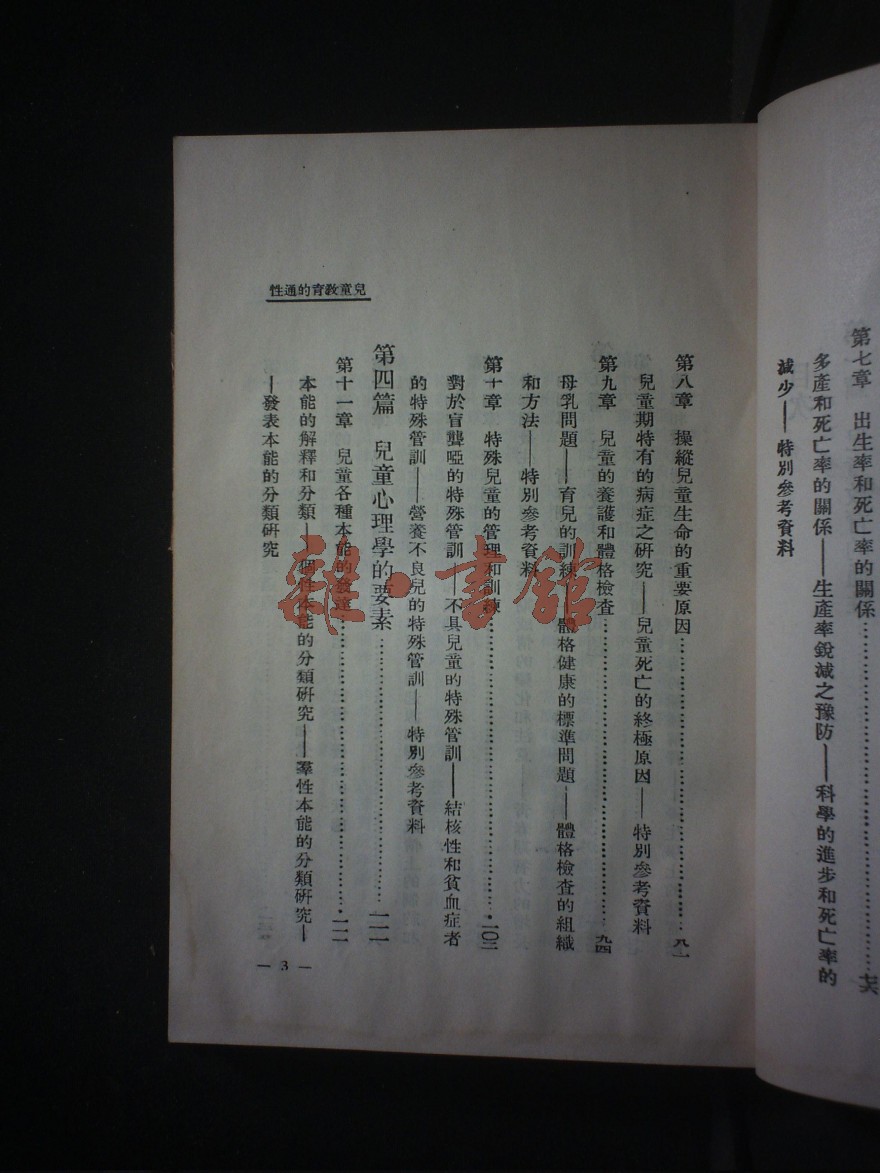 第七章　出生率和死亡率的關係……七六
多產和死亡率的關係——生產率銳減之豫防——科學的進步和死亡率的
減少——特別參考資料
性通的育教童兒
第八章　操縱兒童生命的重要原因……八一
兒童期特有的病症之研究——兒童死亡的終極原因——特別參考資料
第九章　兒童的養護和體格檢查……九四
母乳問題——育兒的訓練——體格健康的標準問題——體格檢查的組織
和方法——特別參考資料
第十章　特殊兒童的管理和訓練……一〇二
對於盲聾啞的特殊管訓——不具兒童的特殊管訓——結核性和貧血症者
的特殊管訓——營養不良兒的特殊管訓——特別參考資料
第四篇　兒童心理學的要素……一一一
第十一章　兒童各種本能的發達……一一一
本能的解釋和分類——個性本能的分類研究——羣性本能的分類研究—
—發表本能的分類研究
— 3 —
雜·書館